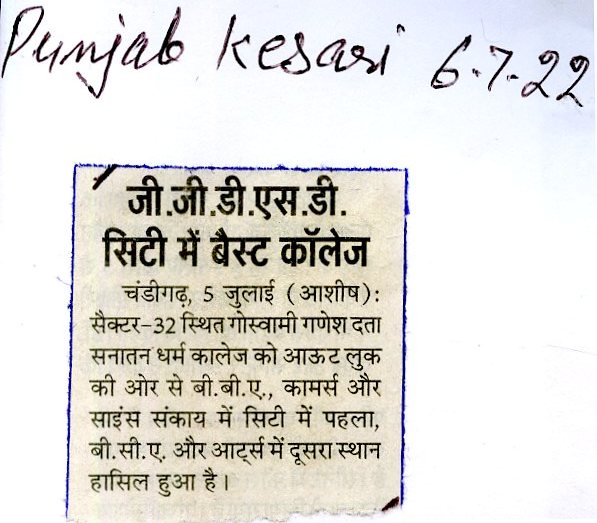 Punjab Kesari 6.7.22
जी.जी.डी.एस.डी.
सिटी में बैस्ट कॉलेज
चंडीगढ़, 5 जुलाई (आशीष):
सैक्टर-32 स्थित गोस्वामी गणेश दता
सनातन धर्म कालेज को आऊट लुक
की ओर से बी.बी.ए., कामर्स और
साइंस संकाय में सिटी में पहला,
बी.सी.ए. और आर्ट्स में दूसरा स्थान
हासिल हुआ है।